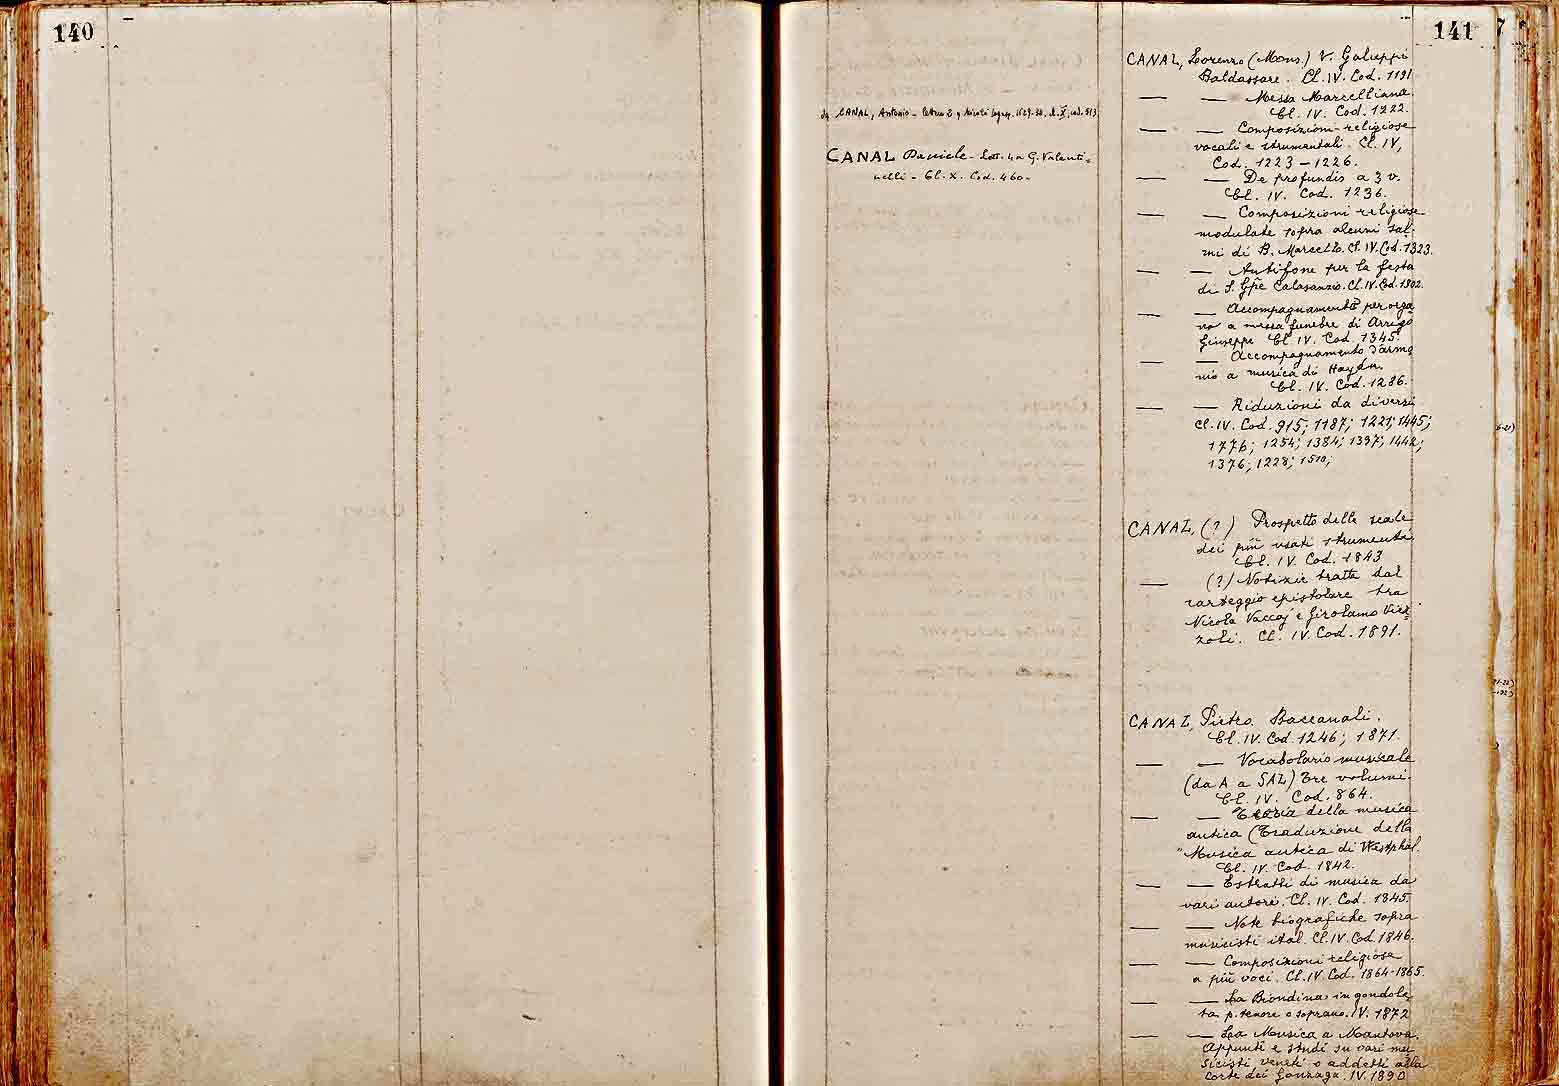 140
141
7
da CANAL, Antonio - lettere 2 a Nicolò 1629-30, cl. X, cod. 513
CANAL Daniele - Lett. 4 a G. Valenti=
nelli - Cl. X. Cod. 460 -
CANAL, Lorenzo (Mons.) V. Galuppi
Baldassare. Cl. IV. Cod. 1191
— — Messa Marcelliana.
Cl. IV. Cod. 1222.
— — Composizioni religiose
vocali e strumentali. Cl. IV,
Cod. 1223 – 1226.
— — De profundis a 3 v.
Cl. IV. Cod. 1236.
— — Composizioni religiose
modulate sopra alcuni sal-
mi di B. Marcello. Cl. IV. Cod. 1323.
— — Antifone per la festa
di S. Gpe Calasanzio. Cl. IV. Cod. 1302.
— — Accompagnamento per orga
no a messa funebre di Arrigo
Giuseppe Cl. IV. Cod. 1345.
— — Accompagnamento d'armo
nio a musica di Haydn.
Cl. IV. Cod. 1286.
— — Riduzioni da diversi
Cl. IV. Cod. 915; 1187; 1221; 1445;
1776; 1254; 1384; 1397; 1442;
1376; 1228; 1510;
CANAL, (?) Prospetto delle scale
dei più usati strumenti
Cl. IV. Cod. 1843
— (?) Notizie tratte dal
carteggio epistolare tra
Nicola Vaccaj e Girolamo Viez=
zoli. Cl. IV. Cod. 1891.
CANAL, Pietro. Baccanali.
Cl. IV. Cod 1246; 1871.
— — Vocabolario musicale
(da A a SAL) Tre volumi.
Cl. IV. Cod. 864.
— — Teoria della musica
antica (Traduzione della
"Musica antica di Westphal.
Cl. IV. Cod. 1842.
— — Estratti di musica da
vari autori. Cl. IV. Cod. 1845.
— — Note biografiche sopra
musicisti ital. Cl. IV. Cod 1846.
— — Composizioni religiose
a più voci. Cl. IV Cod. 1864-1865.
— — La Biondina in gondole
ta p. tenore o soprano. IV. 1872
— — La Musica a Mantova.
Appunti e studi su vari mu
sicisti veneti o addetti alla
Corte dei Gonzaga. IV. 1890